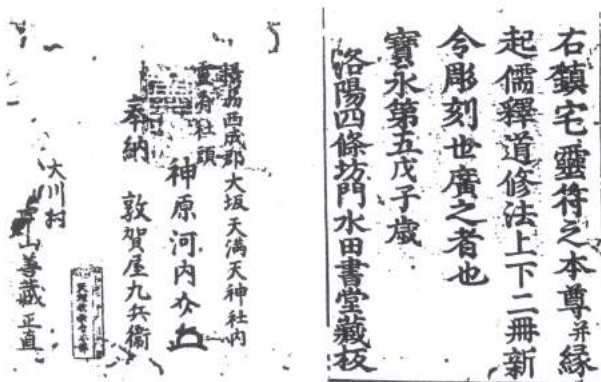 右鎮宅靈符之本尊并縁
起儒釋道修法上下二冊新
令彫刻世廣之者也
寳永第五戊子歳
洛陽四條坊門水田書堂藏板
攝州西成郡大坂天満天神社内
靈符社頭
神原河内介
奉納
敦賀屋九兵衞
大川村
山善藏正直